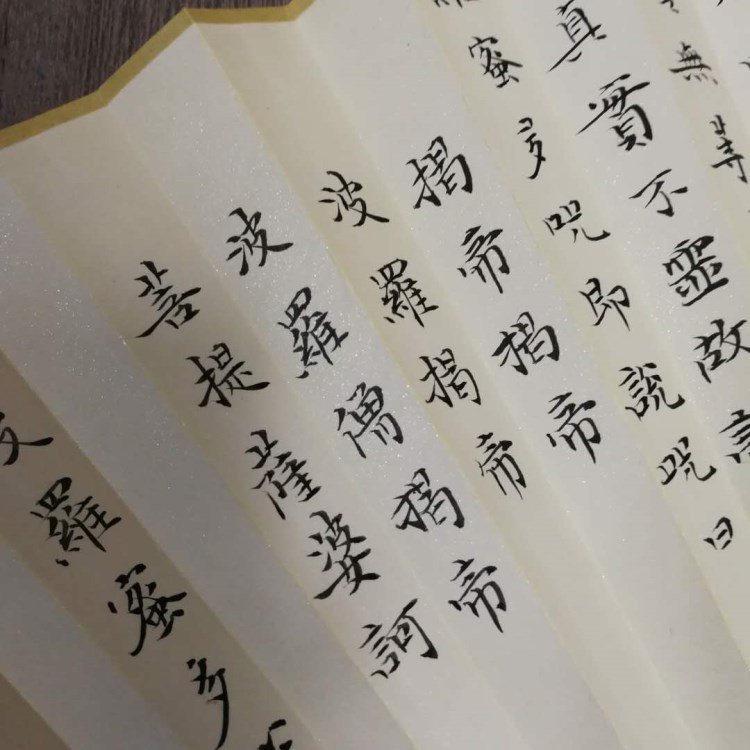 無等
真實不虛故
羅蜜多呪即說呪曰
揭帝揭帝
波羅揭帝
波羅僧揭帝
菩提薩婆訶
波羅蜜多